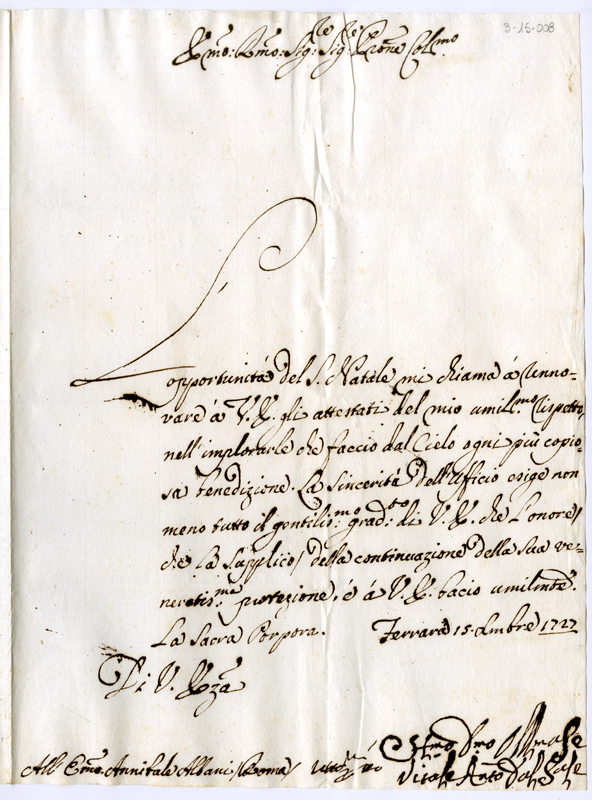 3-15-008
Emo: Rmo: Sig:re Sig:re Prone Colmo
L'opportunità del S. Natale mi chiama á rinno=
vare á V. E. gli attestati del mio umil.mo rispetto,
nell'implorarle che faccio dal Cielo ogni più copio=
sa benedizione. La sincerità dell'Ufficio esige non
meno tutto il gentilis:mo grad:to di V. E. che l'onore/
che la supplico/ della continuazione della sua ve=
neratis:ma protezione, é á V. E. bacio umilmte.
La Sacra Porpora. Ferrara 15. Xmbre 1727
Di V. Eza
Vitale Anto
All' Emo. Annibale Albani /Roma/